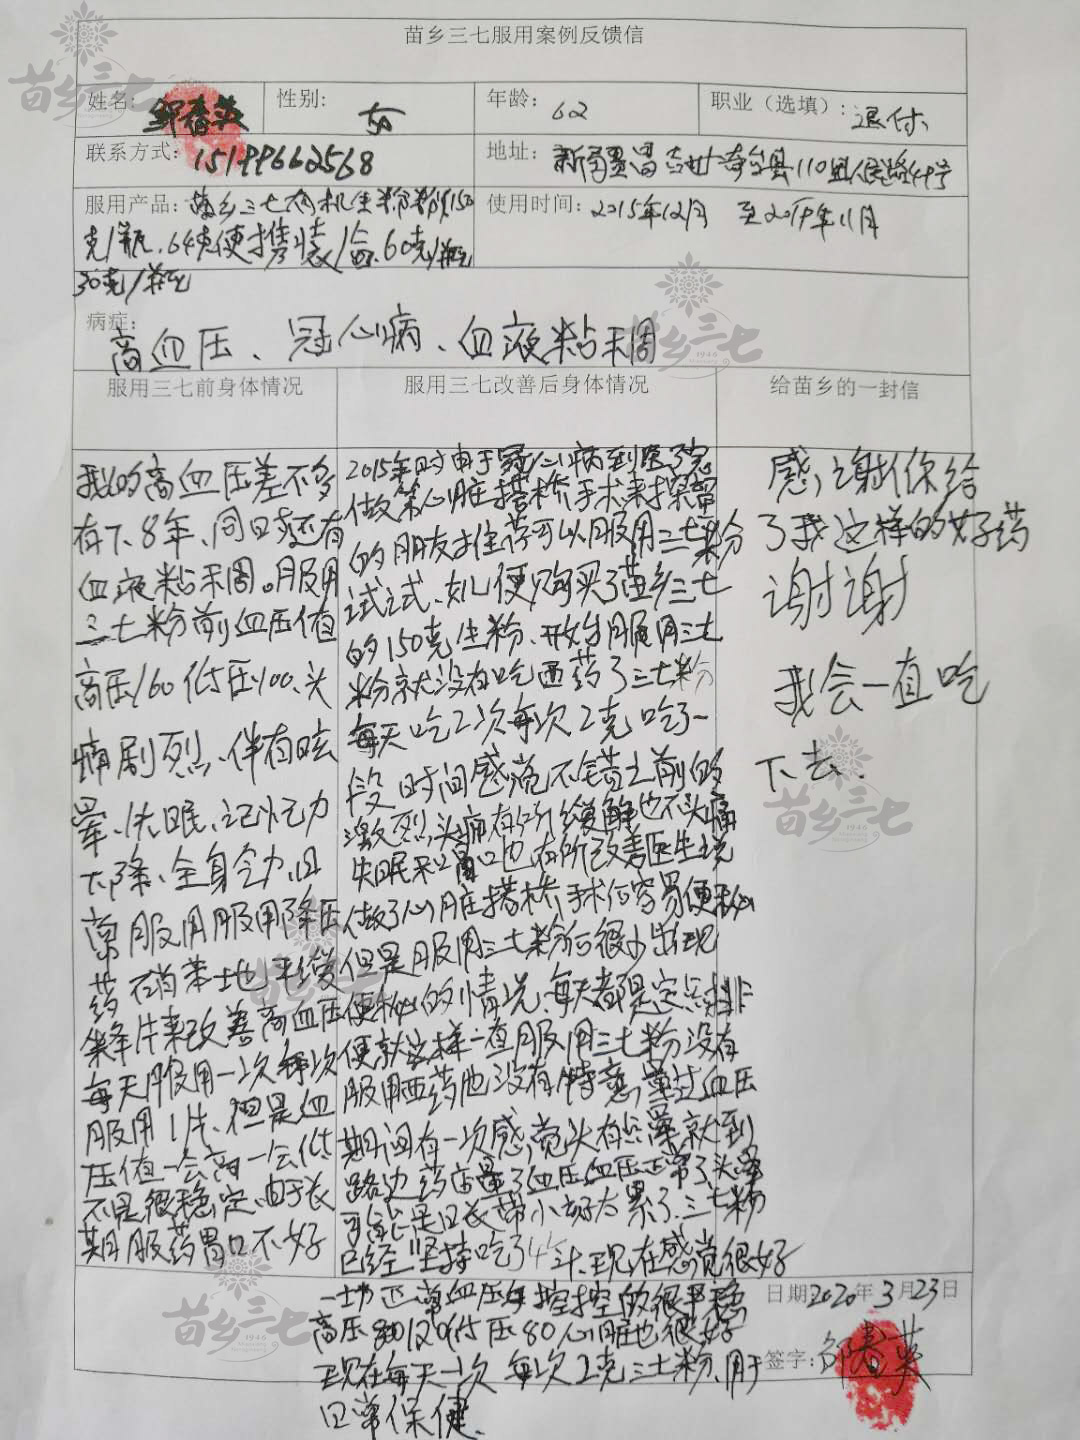 苗乡三七服用案例反馈信
苗乡三七
姓名:
性别: 女
年龄: 62
职业（选填）: 退休
联系方式: 15199662568
地址: 新疆昌吉州奇台县110
使用时间: 2015年12月 至2019年11月
服用产品: 苗乡三七有机生粉 150
克/瓶.64克便携装/盒.60克/瓶
30克/瓶
病症:
高血压、冠心病、血液粘未周
苗乡三七
1946
服用三七前身体情况
服用三七改善后身体情况
给苗乡的一封信
我的高血压差不多
有7、8年、同日求还有
血液粘未周。服用
三七粉前血压值
高压160低压100、头
痛剧烈、伴有眩
晕、失眠、记忆力
下降、全身乏力、日
常服用服用降压
药 硝苯地平缓
来改善高血压
每天服用一次每次
服用1片、但是血
压值一会高一会低
不是很稳定、由于长
期服药胃口不好
2015年时由于冠心病到医院
做第心脏搭桥手术来探留
的朋友推荐可以服用三七粉
试试、便购买了苗乡三七
的150克生粉、开始服用三七
粉就没有吃西药了三七粉
每天吃2次每次2克吃了一
段时间感觉不错之前的
激烈头痛有所缓解也不头痛
失眠和胃口也有所改善医生说
做了心脏搭桥手术后容易便秘
但是服用三七粉后很少出现
便秘的情况、每天都是定点排
便就这样一直服用三七粉没有
服用西药也没有特意量过血压
期间有一次感觉头有点晕就到
路边药店量了血压血压正常了头晕
可能是日长带小孩太累了.三七粉
已经坚持吃了4年、现在感觉很好
一切正常血压控的很平稳
高压120低压80心脏也很好
现在每天一次 每次2克三七粉、用于
日常保健、
感谢你给
了我这样的好药
谢谢
我会一直吃
下去.
苗乡三七
1946
苗乡三七
苗乡三七
1946
日期: 2020年3月23日
签字: